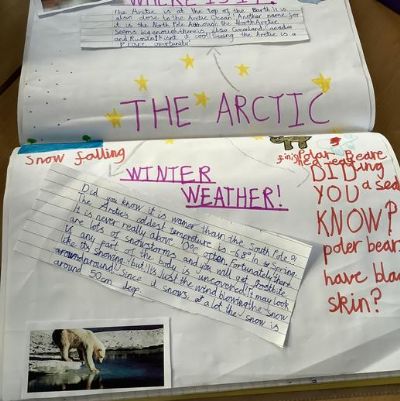 WHERE IS IT?
The Arctic is at the top of the Earth It is
also close to the Arctic Ocean. Another name for
it is the North Pole. Although the North Arctic
seems
and Russia
THE ARCTIC
Snow falling
WINTER
WEATHER!
Did you know it is warmer than the South Pole?
The Arctic's coldest temprature is -68° In Spring
It is never really above 0°c often, fortunately there
are lots of snowstorms and you will get frostbite
if any part of the body is uncovered! It may look
like its snowing but its just the wind blowing the snow
around around! Since it snows a lot the snow is
around 50cm deep
Polar Beare
DID
YOU
a sea
KNOW?
poler bear
have blac
skin?